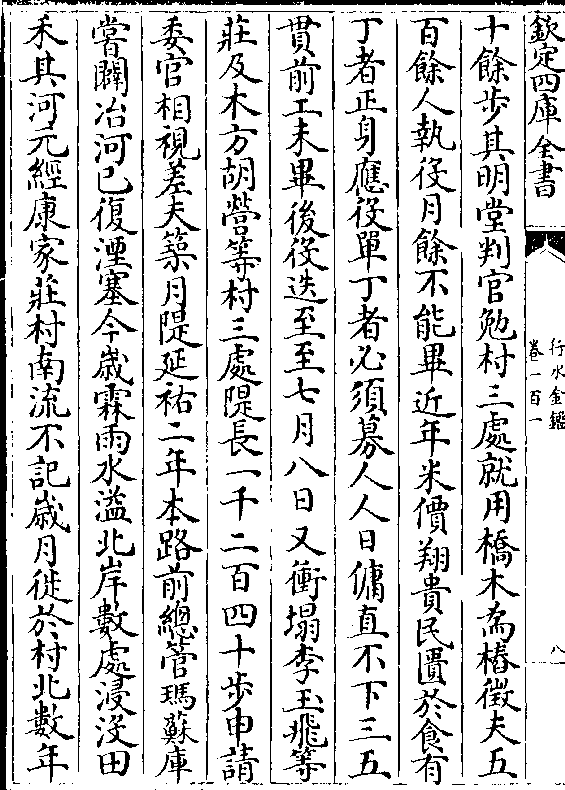 欽定四庫全書
行水金鑑
卷一百一
八
十餘步其明堂判官勉村三處就用橋木為樁徵夫五
百餘人執役月餘不能畢近年米價翔貴民匱於食有
丁者正身應役單丁者必須募人人日傭直不下三五
貫前工未畢後役迭至至七月八日又衝塌李玉飛等
莊及木方胡營等村三處隄長一千二百四十步申請
委官相視差夫築月隄延祐二年本路前總管瑪蘇庫
嘗闢冶河已復湮塞今歲霖雨水溢北岸數處浸沒田
禾其河元經康家莊村南流不記歲月徙於村北數年